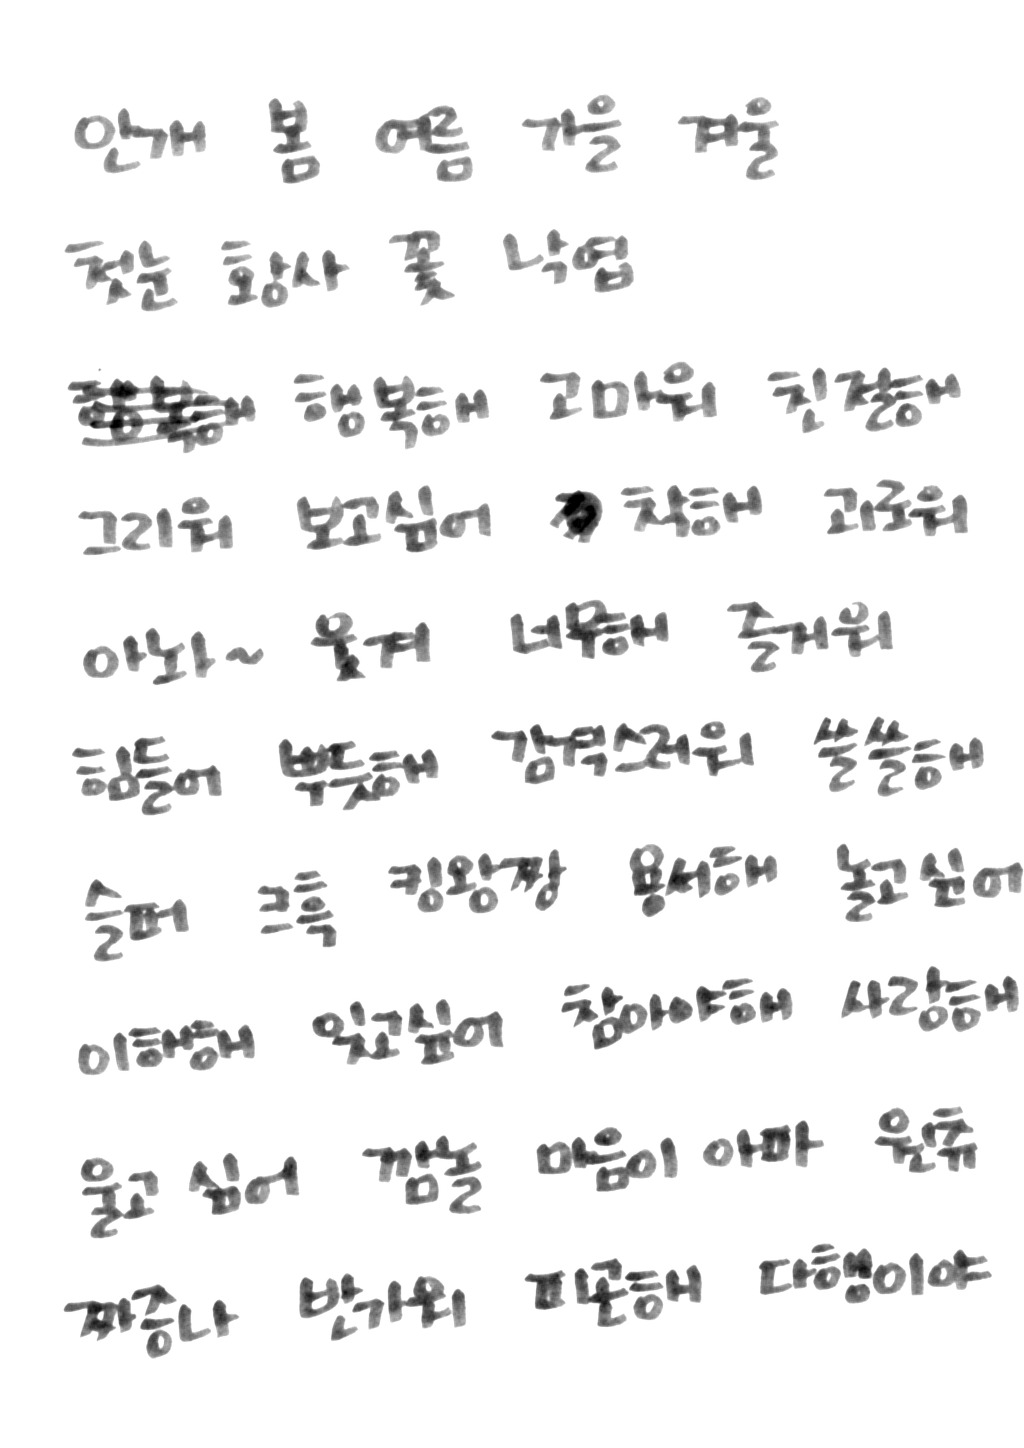 안개 봄 여름 가을 겨울
첫눈 황사 꽃 낙엽
행복해 고마워 친절해
그리워 보고싶어 착해 괴로워
아놔~ 웃겨 너무해 즐거워
힘들어 뿌듯해 감격스러워 쓸쓸해
슬퍼 크흑 킹왕짱 용서해 놀고싶어
이해해 잊고싶어 참아야해 사랑해
울고 싶어 깜놀 마음이 아파 원츄
짜증나 반가워 피곤해 다행이야